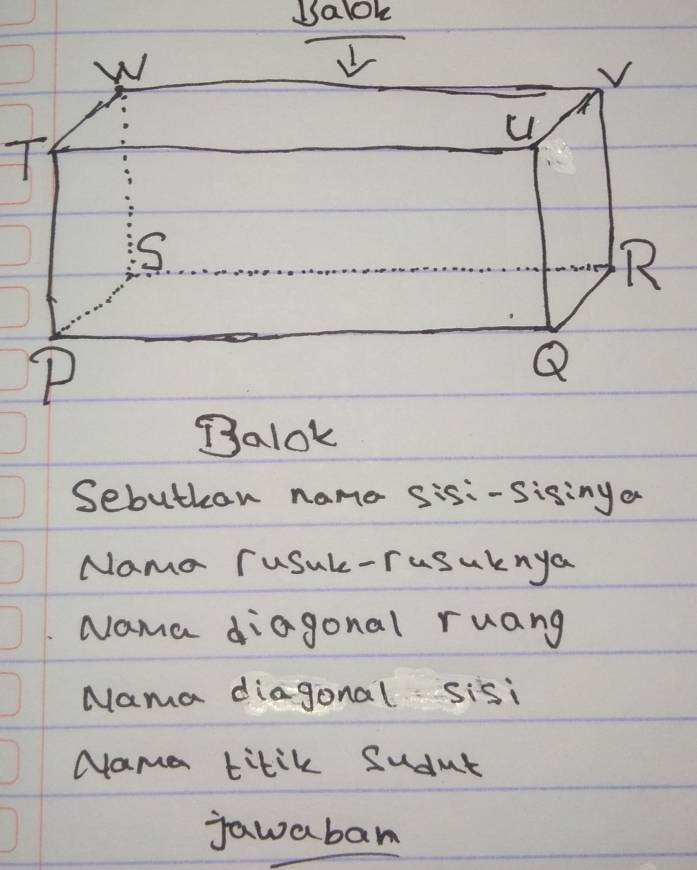 Balok
W V
T U
S R
P Q
Balok
Sebutkan nama sisi-sisinya
Nama rusuk-rusuknya
Nama diagonal ruang
Nama diagonal sisi
Nama titik sudut
jawaban